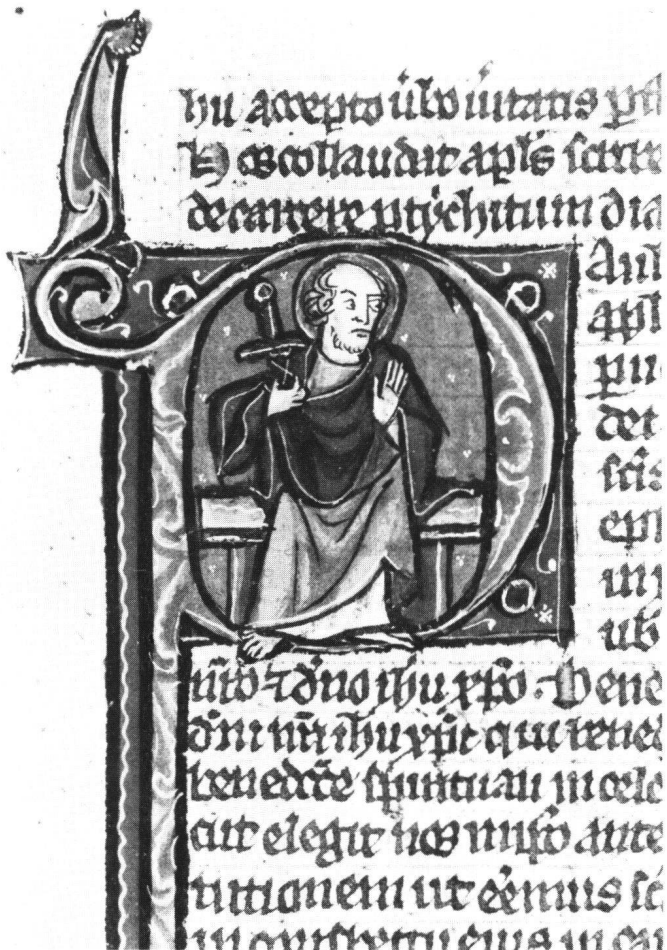 hu accepto ubo uitatis pst
Hos collaudat apls scribe
de carcere p tychicum dia
Aul
apl
dei
scis
eph
in
ub
nro ⁊ dno ihu xpo. Bene
dni nri ihu xpi qui bened
benedcce spirituali in cele
cut elegit nos in ipso ante
tutionem ut eemus sc
in conspectu eius in ca